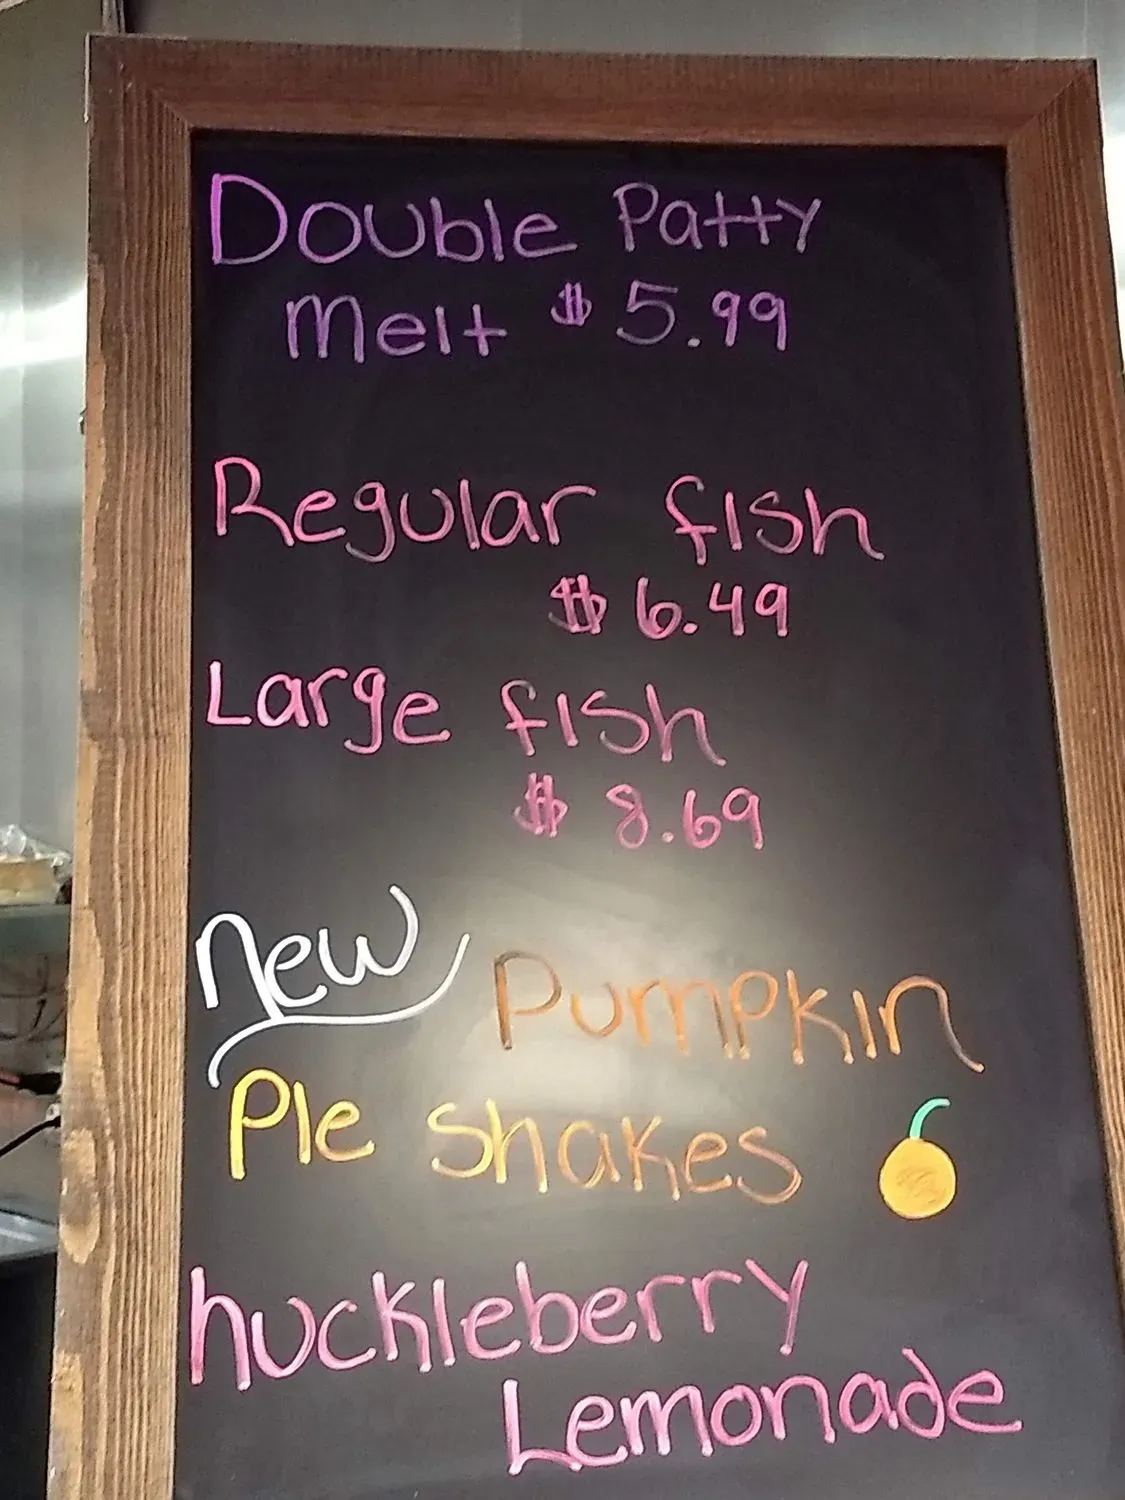 Double Patty
Melt $5.99
Regular fish
$6.49
Large fish
$8.69
New Pumpkin
Pie Shakes
huckleberry
Lemonade